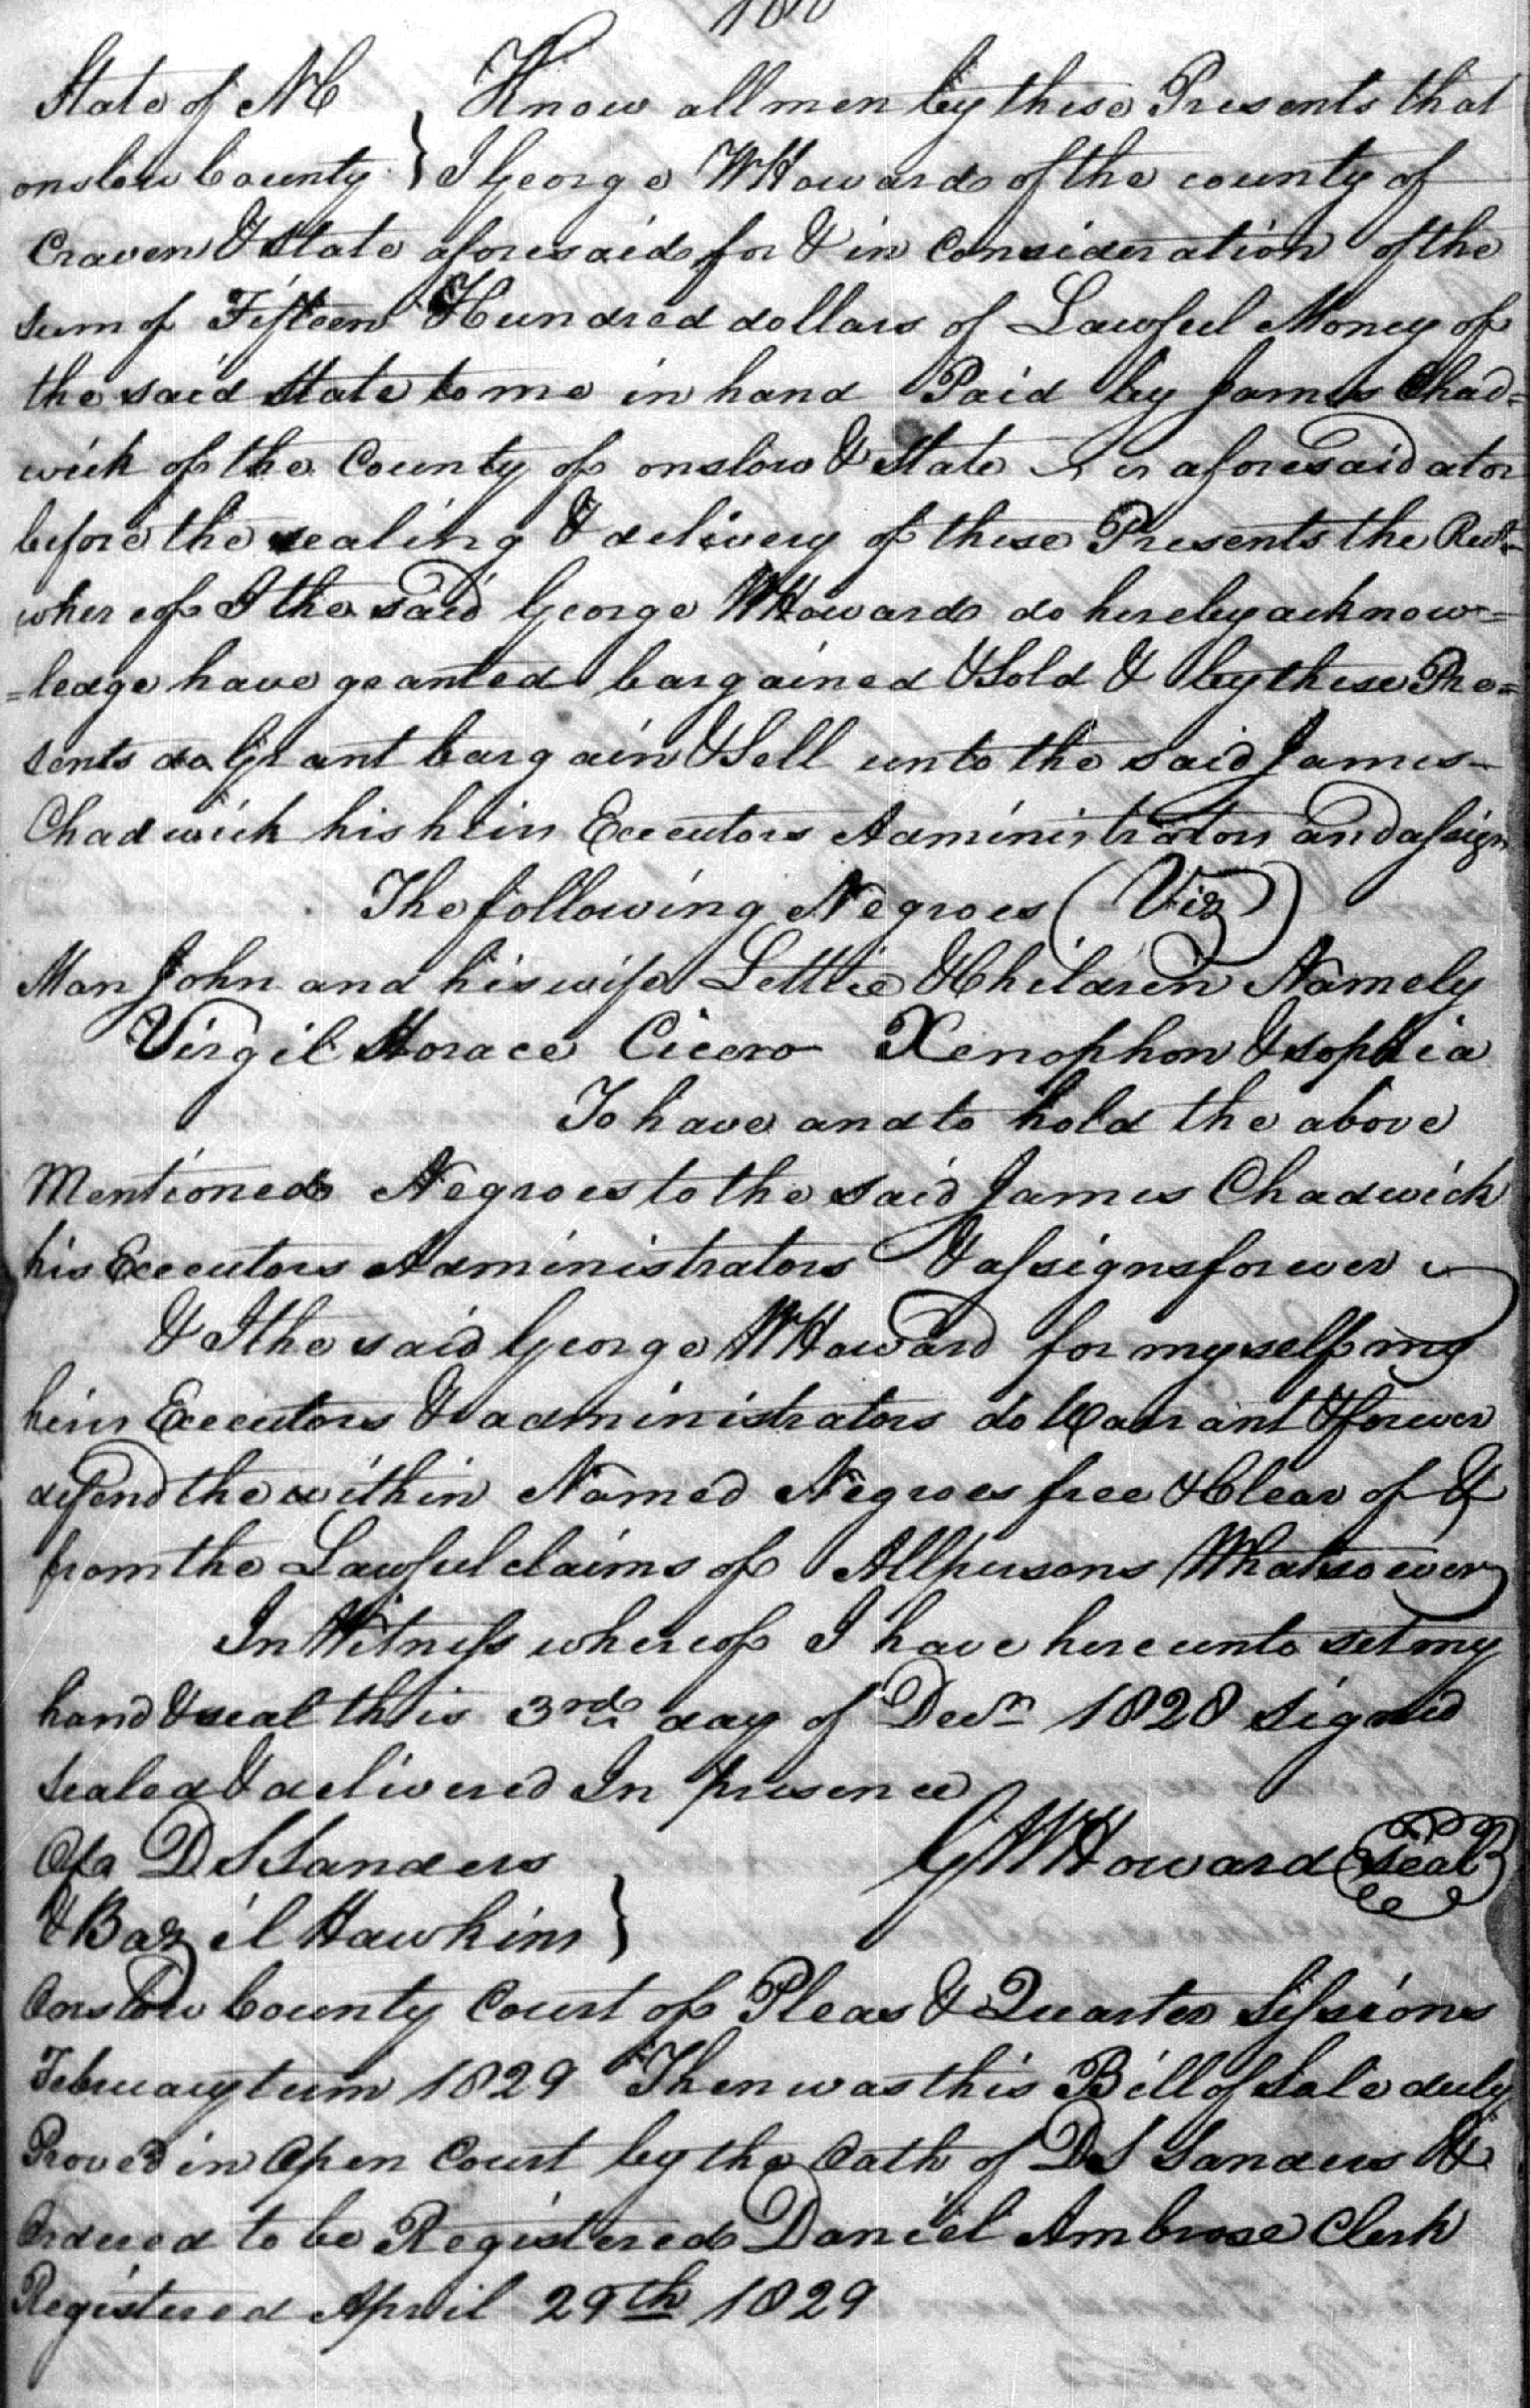 State of NC } Know all men by these Presents that
onslow County } I George W Howard of the county of
Craven & State aforesaid for & in Consideration of the
sum of Fifteen Hundred dollars of Lawful Money of
the said State to me in hand Paid by James Chad=
wick of the County of onslow & State aforesaid at or
before the sealing & delivery of these Presents the Rect
whereof I the said George W Howard do hereby acknow=
=ledge have granted bargained & Sold & by these Pre=
sents do Grant bargain & Sell unto the said James
Chadwick his heirs Executors Administrators and assigns
The following Negroes (Viz)
Man John and his wife Lettie & Children Namely
Virgil Horace Cicero Xenophon & sophia
To have and to hold the above
Mentioned Negroes to the said James Chadwick
his Executors Administrators & assigns forever
& I the said George W Howard for myself my
heirs Executors & administrators do Warrant & forever
defend the within Named Negroes free & Clear of &
from the Lawful claims of All persons Whatsoever
In Witness whereof I have hereunto set my
hand & seal this 3rd day of Decr 1828 signed
sealed & delivered In presence
Of D S Sanders G W Howard (seal)
& Bazil Hawkins }
Onslow County Court of Pleas & Quarter Sessions
February term 1829 Then was this Bill of Sale duly
Proved in Open Court by the Oath of D S Sanders &
Ordered to be Registered Daniel Ambrose Clerk
Registered April 29th 1829